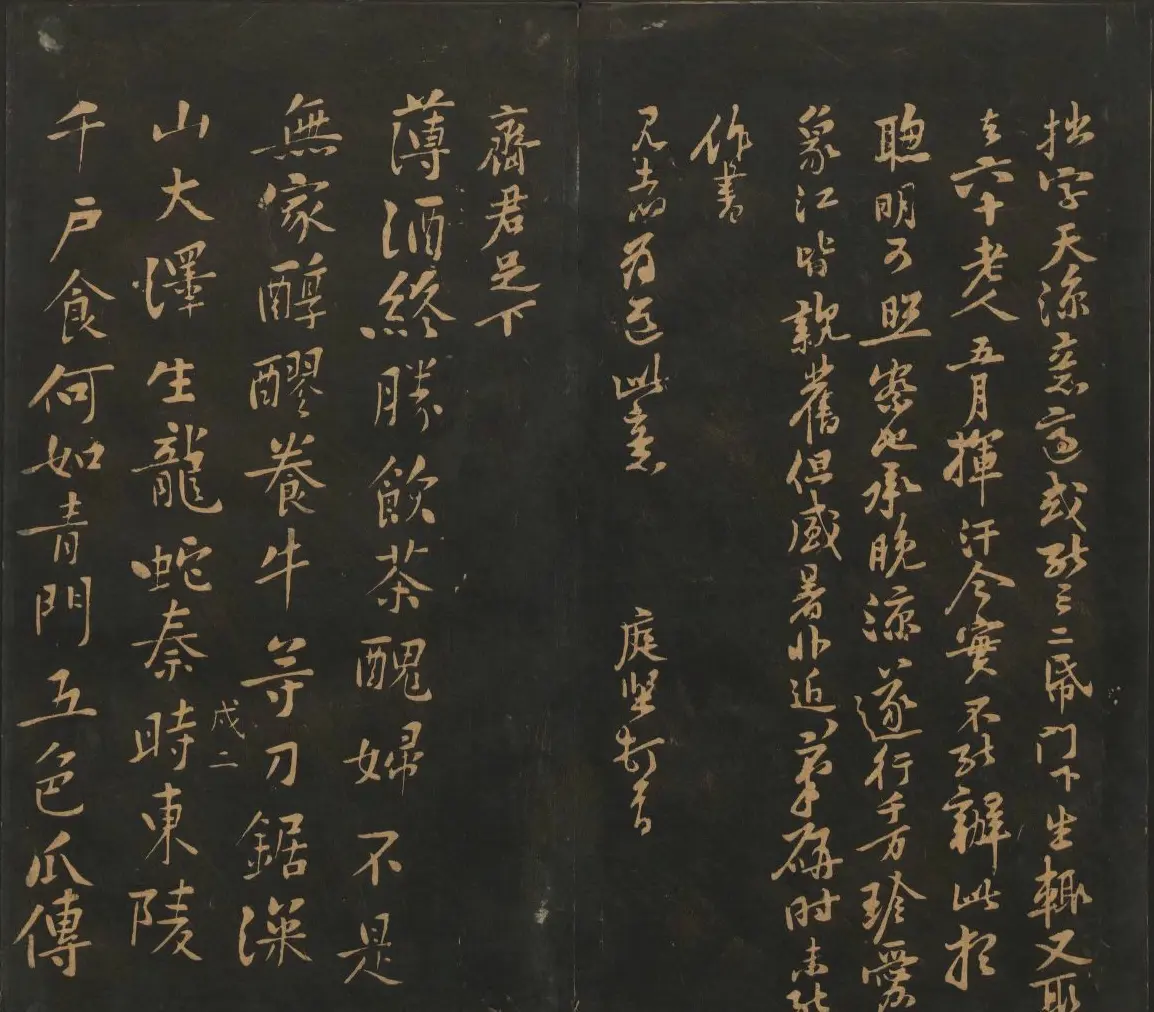 拙字天涼意適或能三二帋門下生輒又取
去六十老人五月揮汗今實不能辦此想
聰明可照察也承晚涼遂行千万珍愛
象江皆親舊但盛暑非近筆硯時未能
作書
見者為道此意 庭堅頓首
齊君足下
薄酒終勝飲茶醜婦不是
無家醇醪養牛等刀鋸深
戊二
山大澤生龍蛇秦時東陵
千戶食何如青門五色瓜傳